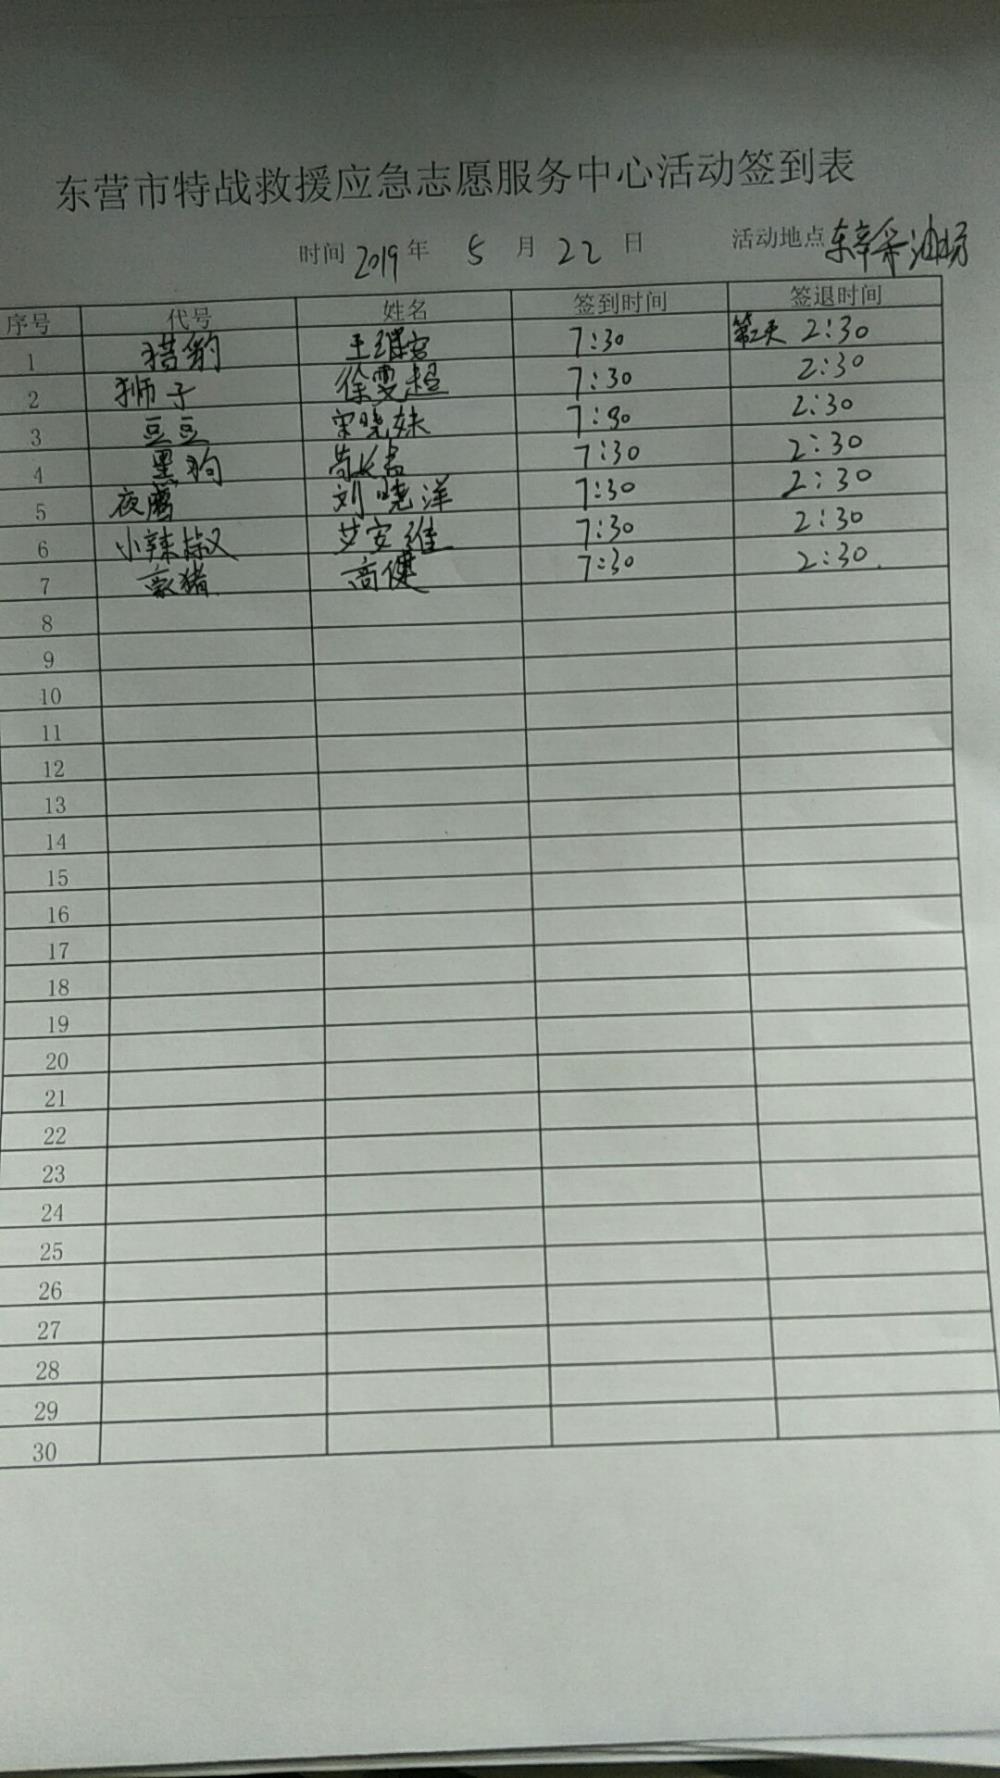 东营市特战救援应急志愿服务中心活动签到表
时间 2019 年 5 月 22 日 活动地点 东辛采油场
序号 代号 姓名 签到时间 签退时间
1 猎豹 王继 7:30 第二天 2:30
2 狮子 徐雯超 7:30 2:30
3 豆豆 宋晓妹 7:30 2:30
4 黑狗 7:30 2:30
5 夜鹰 刘晓洋 7:30 2:30
6 小辣椒 艾安维 7:30 2:30
7 豪猪 高健 7:30 2:30
8
9
10
11
12
13
14
15
16
17
18
19
20
21
22
23
24
25
26
27
28
29
30